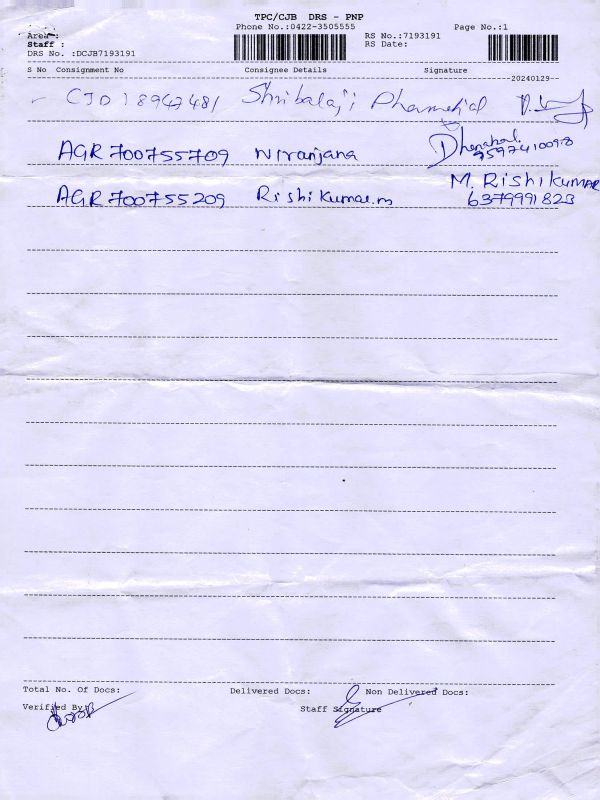 TPC/CJB DRS - PNP
Phone No.:0422-3505555 Page No.:1
Area : RS No.:7193191
Staff : RS Date:
DRS No. :DCJB7193191
S No Consignment No Consignee Details Signature
20240129
CJD18947481 Shribalaji
AGR 700755709 Niranjana 9597410098
AGR 700755209 Rishi Kumar.m M. RISHIKUMAR
6379991823
Total No. Of Docs: Delivered Docs: Non Delivered Docs:
Verified By: Staff Signature